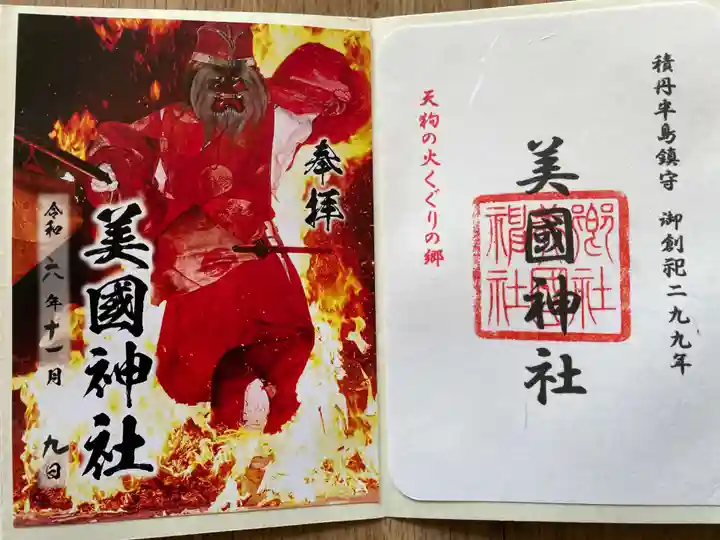 奉拝
美國神社
令和六年十一月九日
積丹半島鎮守 御創祀二九九年
美國神社
天狗の火くぐりの郷
郷社
美國
神社